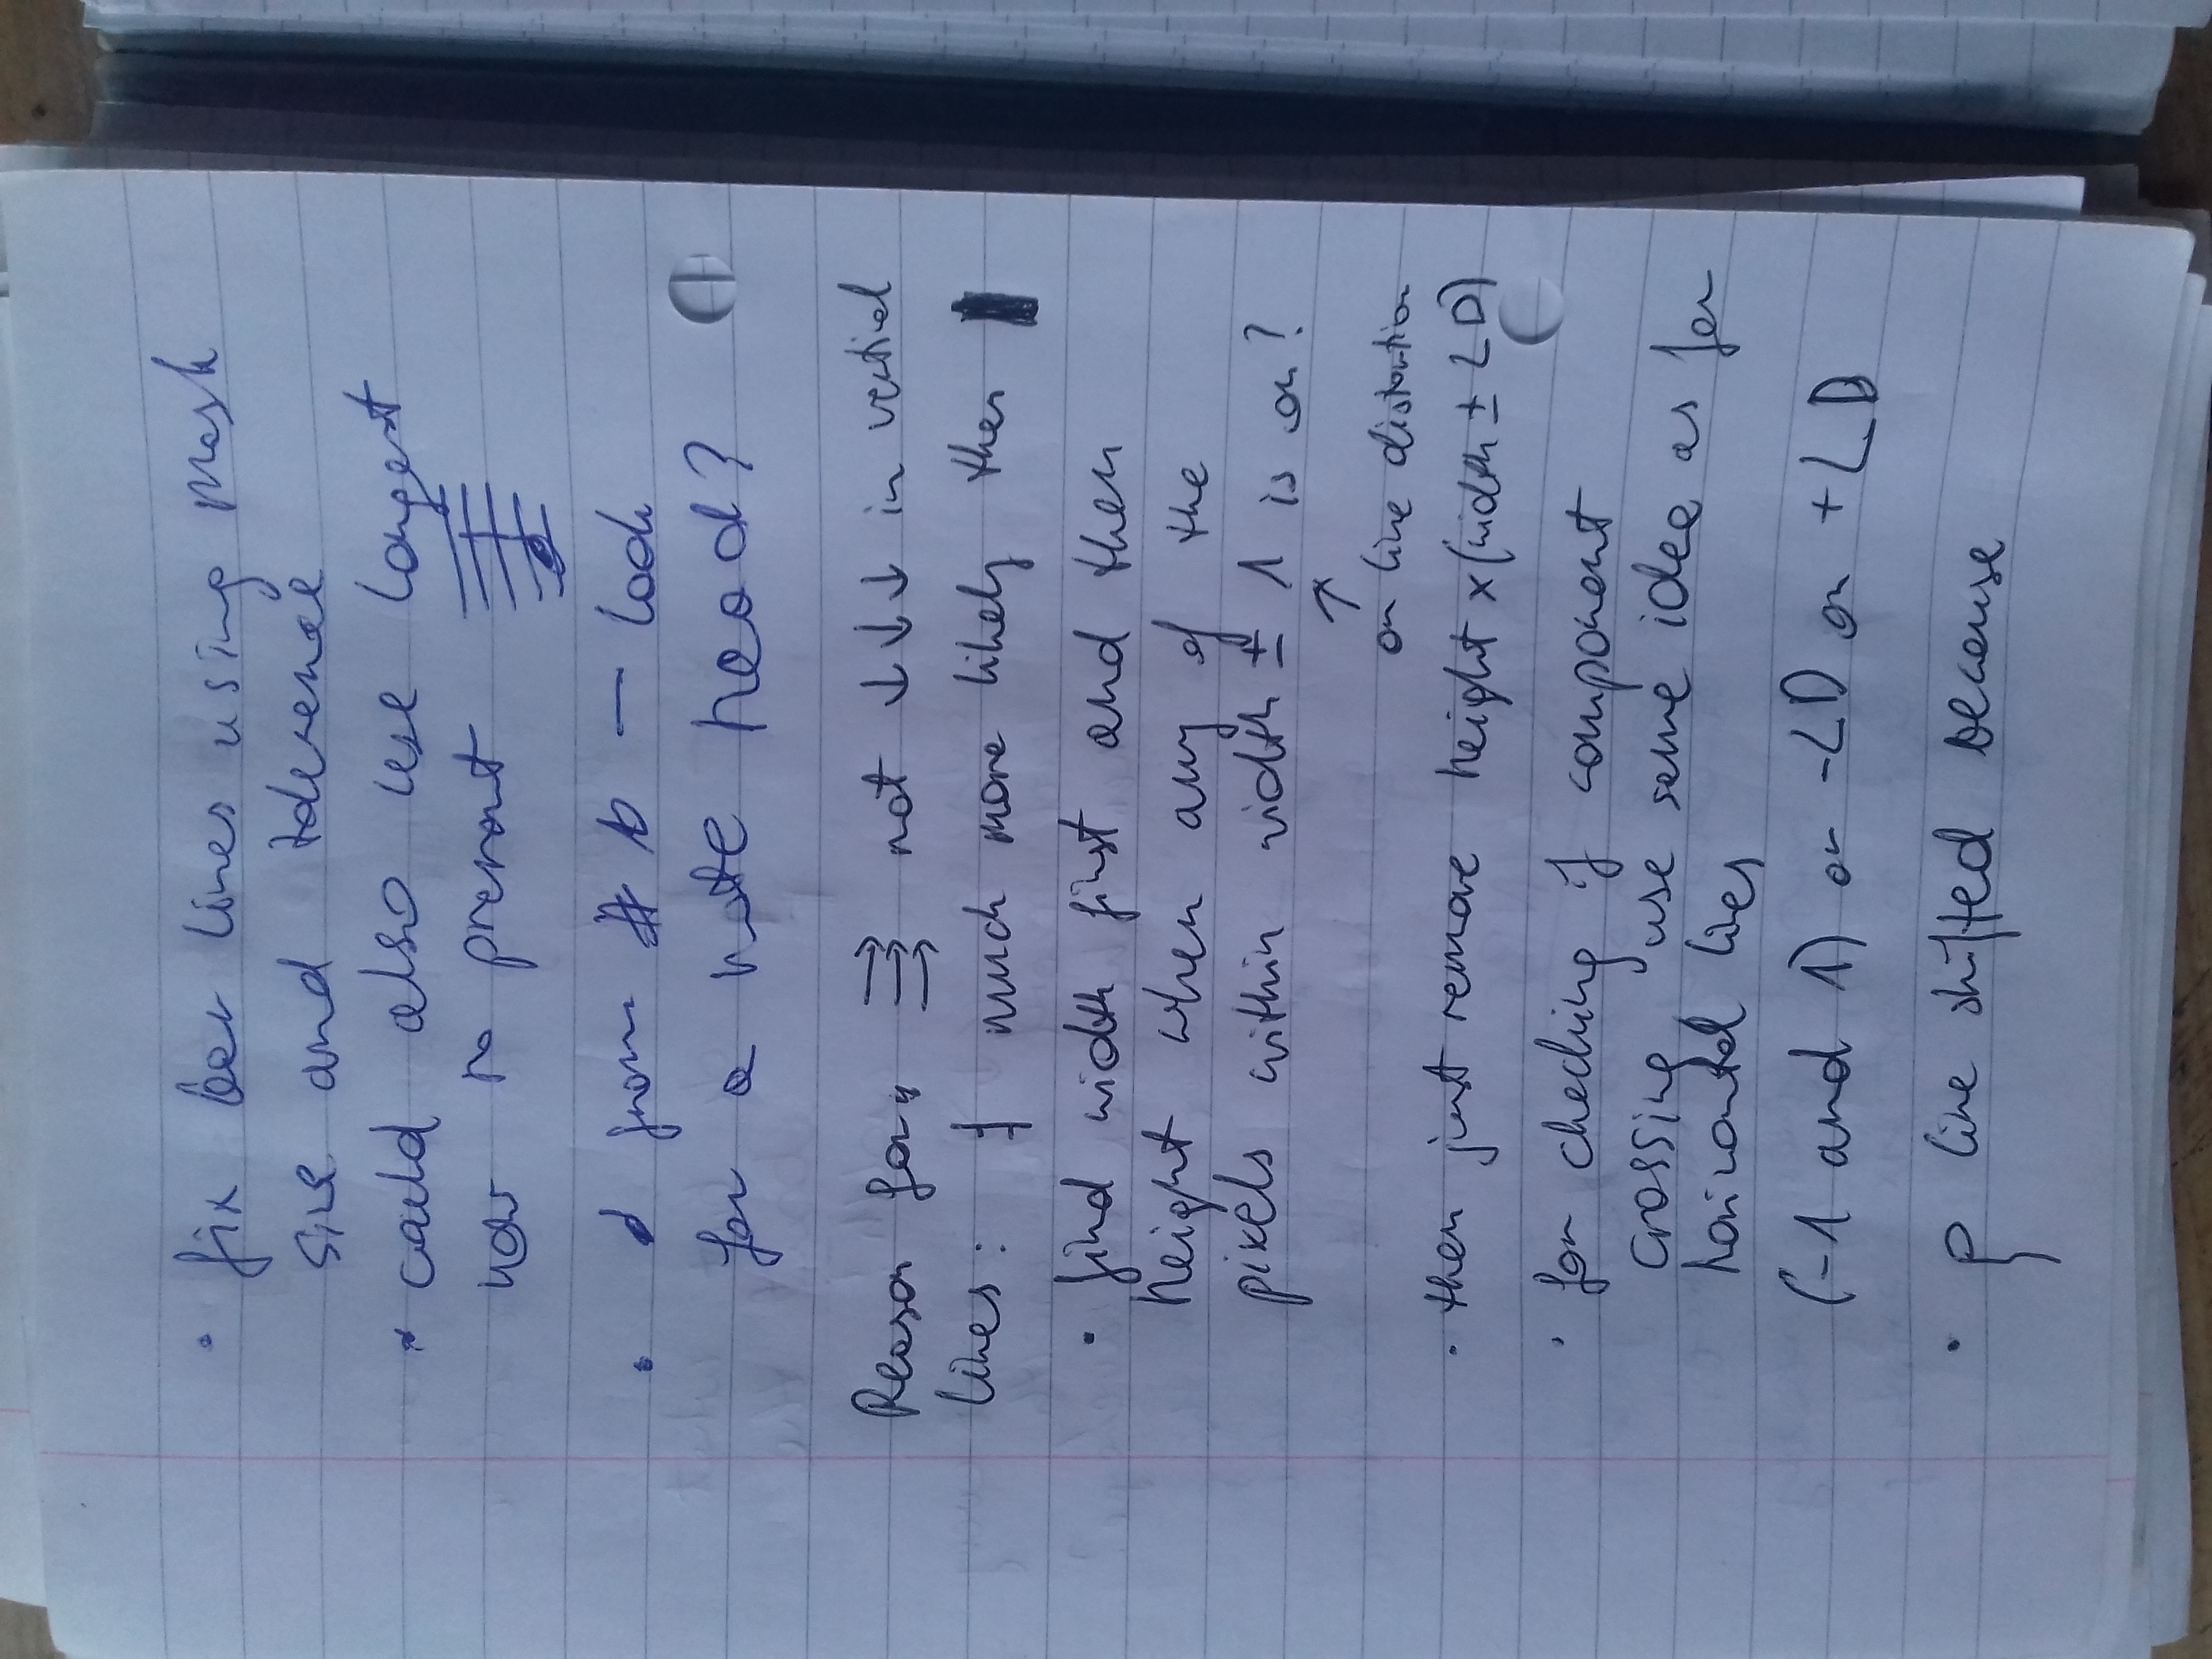 • fix bar lines using mask
size and tolerance
• could also use longest
row to prevent
• from # b — look
for a note head?
Reason for ⇉ not ↓↓↓ in vertical
lines: much more likely than
• find width first and then
height when any of the
pixels within width ± 1 is on?
↑
or line distortion
• then just remove height x (width ± LD)
• for checking if component
crossing use same idea as for
horizontal lines
(-1 and 1) or -LD or +LD
• line shifted because